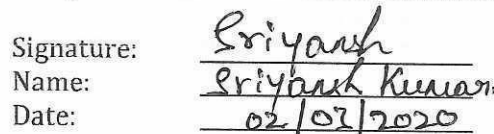 Signature: Sriyansh
Name: Sriyansh Kumar.
Date: 02/07/2020